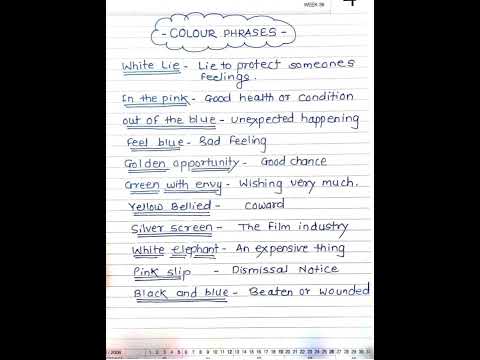 WEEK 36
- COLOUR PHRASES -
White Lie - Lie to protect someones
feelings.
In the pink - Good health or condition
out of the blue - unexpected happening
Feel blue - Sad feeling
Golden opportunity - Good chance
Green with envy - Wishing very much.
Yellow Bellied - coward
Silver screen - The Film industry
White elephant - An expensive thing
Pink slip - Dismissal Notice
Black and blue - Beaten or wounded